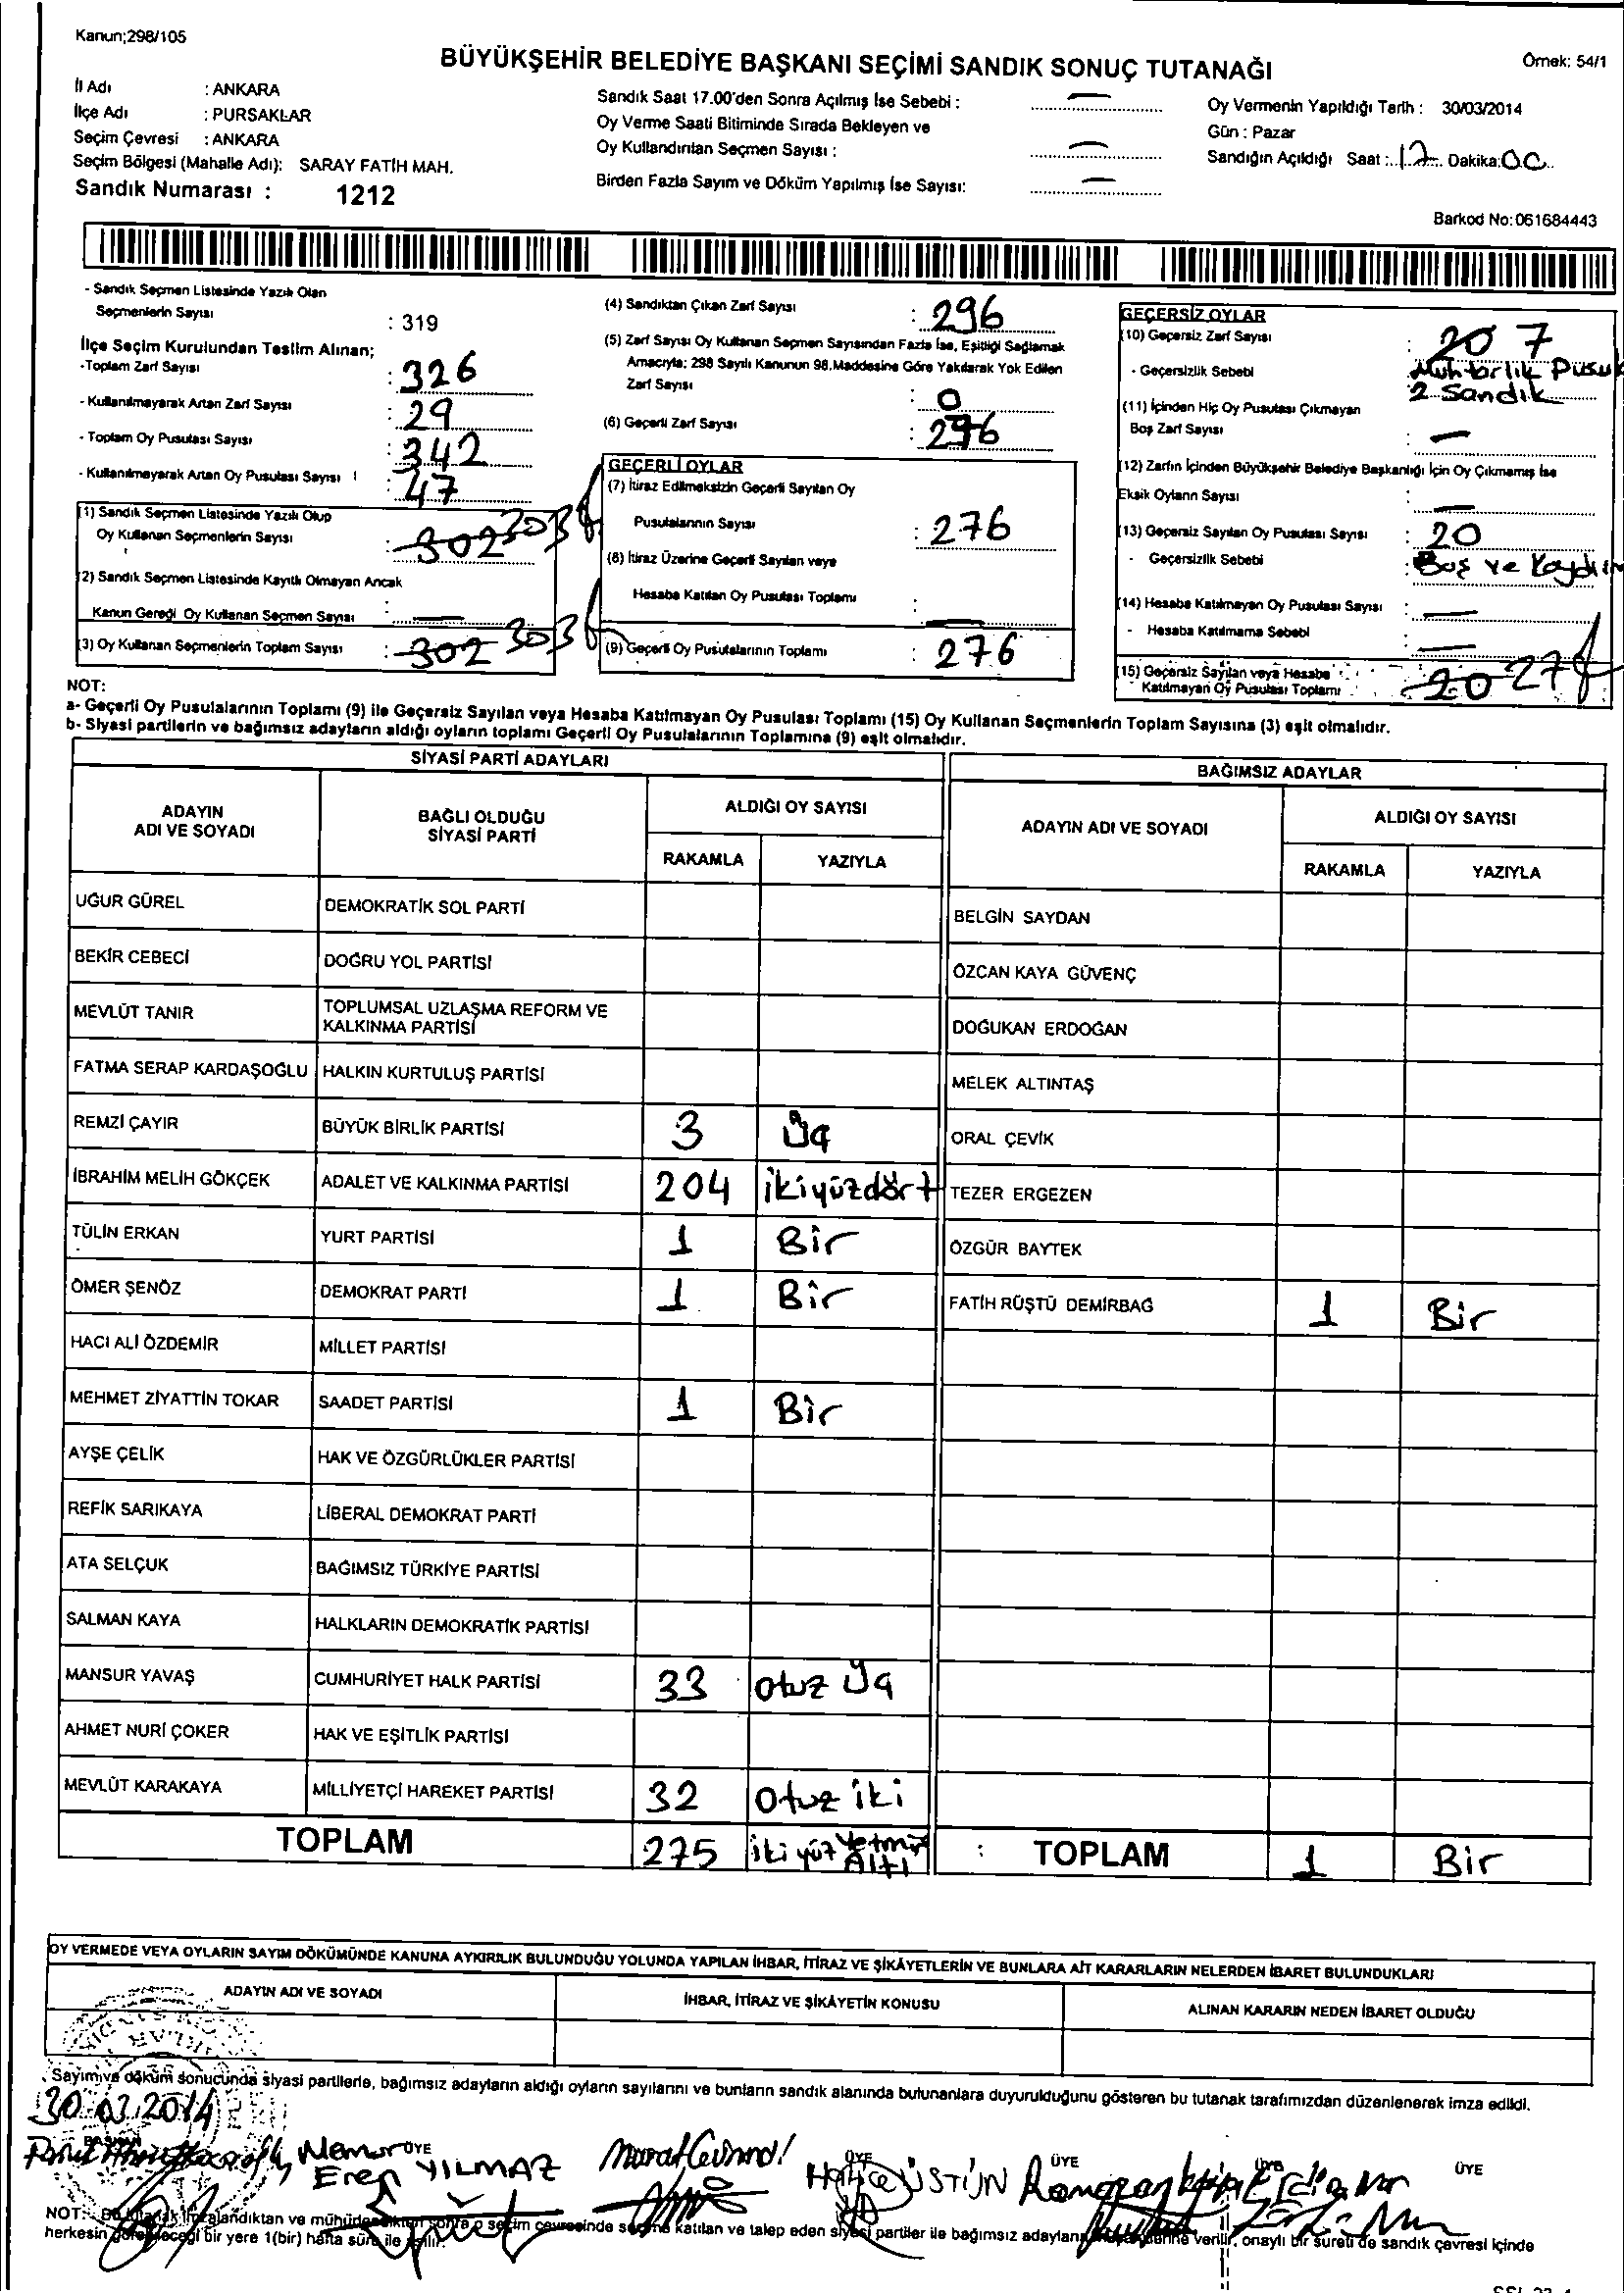 Kanun;298/105
BÜYÜKŞEHİR BELEDİYE BAŞKANI SEÇİMİ SANDIK SONUÇ TUTANAĞI
Örnek: 54/1
İl Adı : ANKARA
İlçe Adı : PURSAKLAR
Seçim Çevresi : ANKARA
Seçim Bölgesi (Mahalle Adı): SARAY FATİH MAH.
Sandık Numarası : 1212
Sandık Saat 17.00'den Sonra Açılmış İse Sebebi : —
Oy Verme Saati Bitiminde Sırada Bekleyen ve
Oy Kullandırılan Seçmen Sayısı : —
Birden Fazla Sayım ve Döküm Yapılmış İse Sayısı: —
Oy Vermenin Yapıldığı Tarih : 30/03/2014
Gün : Pazar
Sandığın Açıldığı Saat : 17 Dakika: 00
Barkod No: 061684443
- Sandık Seçmen Listesinde Yazılı Olan
Seçmenlerin Sayısı : 319
İlçe Seçim Kurulundan Teslim Alınan;
-Toplam Zarf Sayısı : 326
- Kullanılmayarak Artan Zarf Sayısı : 29
- Toplam Oy Pusulası Sayısı : 342
- Kullanılmayarak Artan Oy Pusulası Sayısı : 47
(1) Sandık Seçmen Listesinde Yazılı Olup
Oy Kullanan Seçmenlerin Sayısı : 302 303
(2) Sandık Seçmen Listesinde Kayıtlı Olmayan Ancak
Kanun Gereği Oy Kullanan Seçmen Sayısı : —
(3) Oy Kullanan Seçmenlerin Toplam Sayısı : 302 303
(4) Sandıktan Çıkan Zarf Sayısı : 296
(5) Zarf Sayısı Oy Kullanan Seçmen Sayısından Fazla İse, Eşitliği Sağlamak
Amacıyla; 298 Sayılı Kanunun 98.Maddesine Göre Yakılarak Yok Edilen
Zarf Sayısı : 0
(6) Geçerli Zarf Sayısı : 296
GEÇERLİ OYLAR
(7) İtiraz Edilmeksizin Geçerli Sayılan Oy
Pusulalarının Sayısı : 276
(8) İtiraz Üzerine Geçerli Sayılan veya
Hesaba Katılan Oy Pusulası Toplamı : —
(9) Geçerli Oy Pusulalarının Toplamı : 276
GEÇERSİZ OYLAR
(10) Geçersiz Zarf Sayısı : 20 7
- Geçersizlik Sebebi : Muhtarlık Pusul
2 Sandık
(11) İçinden Hiç Oy Pusulası Çıkmayan
Boş Zarf Sayısı : —
(12) Zarfın İçinden Büyükşehir Belediye Başkanlığı İçin Oy Çıkmamış İse
Eksik Oyların Sayısı : —
(13) Geçersiz Sayılan Oy Pusulası Sayısı : 20
- Geçersizlik Sebebi : Boş ve
(14) Hesaba Katılmayan Oy Pusulası Sayısı : —
- Hesaba Katılmama Sebebi : —
(15) Geçersiz Sayılan veya Hesaba
Katılmayan Oy Pusulası Toplamı : 20 27
NOT:
a- Geçerli Oy Pusulalarının Toplamı (9) ile Geçersiz Sayılan veya Hesaba Katılmayan Oy Pusulası Toplamı (15) Oy Kullanan Seçmenlerin Toplam Sayısına (3) eşit olmalıdır.
b- Siyasi partilerin ve bağımsız adayların aldığı oyların toplamı Geçerli Oy Pusulalarının Toplamına (9) eşit olmalıdır.
SİYASİ PARTİ ADAYLARI
ADAYIN ADI VE SOYADI BAĞLI OLDUĞU SİYASİ PARTİ ALDIĞI OY SAYISI RAKAMLA YAZIYLA
UĞUR GÜREL DEMOKRATİK SOL PARTİ
BEKİR CEBECİ DOĞRU YOL PARTİSİ
MEVLÜT TANIR TOPLUMSAL UZLAŞMA REFORM VE KALKINMA PARTİSİ
FATMA SERAP KARDAŞOĞLU HALKIN KURTULUŞ PARTİSİ
REMZİ ÇAYIR BÜYÜK BİRLİK PARTİSİ 3 Üç
İBRAHİM MELİH GÖKÇEK ADALET VE KALKINMA PARTİSİ 204 ikiyüzdört
TÜLİN ERKAN YURT PARTİSİ 1 Bir
ÖMER ŞENÖZ DEMOKRAT PARTİ 1 Bir
HACI ALİ ÖZDEMİR MİLLET PARTİSİ
MEHMET ZİYATTİN TOKAR SAADET PARTİSİ 1 Bir
AYŞE ÇELİK HAK VE ÖZGÜRLÜKLER PARTİSİ
REFİK SARIKAYA LİBERAL DEMOKRAT PARTİ
ATA SELÇUK BAĞIMSIZ TÜRKİYE PARTİSİ
SALMAN KAYA HALKLARIN DEMOKRATİK PARTİSİ
MANSUR YAVAŞ CUMHURİYET HALK PARTİSİ 33 otuz Üç
AHMET NURİ ÇOKER HAK VE EŞİTLİK PARTİSİ
MEVLÜT KARAKAYA MİLLİYETÇİ HAREKET PARTİSİ 32 Otuz iki
TOPLAM 275 iki yüz Yetmiş Altı
BAĞIMSIZ ADAYLAR
ADAYIN ADI VE SOYADI ALDIĞI OY SAYISI RAKAMLA YAZIYLA
BELGİN SAYDAN
ÖZCAN KAYA GÜVENÇ
DOĞUKAN ERDOĞAN
MELEK ALTINTAŞ
ORAL ÇEVİK
TEZER ERGEZEN
ÖZGÜR BAYTEK
FATİH RÜŞTÜ DEMİRBAĞ 1 Bir
: TOPLAM 1 Bir
OY VERMEDE VEYA OYLARIN SAYIM DÖKÜMÜNDE KANUNA AYKIRILIK BULUNDUĞU YOLUNDA YAPILAN İHBAR, İTİRAZ VE ŞİKÂYETLERİN VE BUNLARA AİT KARARLARIN NELERDEN İBARET BULUNDUKLARI
ADAYIN ADI VE SOYADI İHBAR, İTİRAZ VE ŞİKÂYETİN KONUSU ALINAN KARARIN NEDEN İBARET OLDUĞU
Sayım ve döküm sonucunda siyasi partilerle, bağımsız adayların aldığı oyların sayılarını ve bunların sandık alanında bulunanlara duyurulduğunu gösteren bu tutanak tarafımızdan düzenlenerek imza edildi.
30.03.2014
BAŞKAN ÜYE ÜYE ÜYE ÜYE ÜYE
Memur
Eren YILMAZ Murat Hatice ÜSTÜN Ramazan
NOT: Bu tutanak imzalandıktan ve mühürlendikten sonra o seçim çevresinde seçime katılan ve talep eden siyasi partiler ile bağımsız adayların verilir, onaylı bir sureti de sandık çevresi içinde
herkesin görebileceği bir yere 1(bir) hafta süre ile asılır.